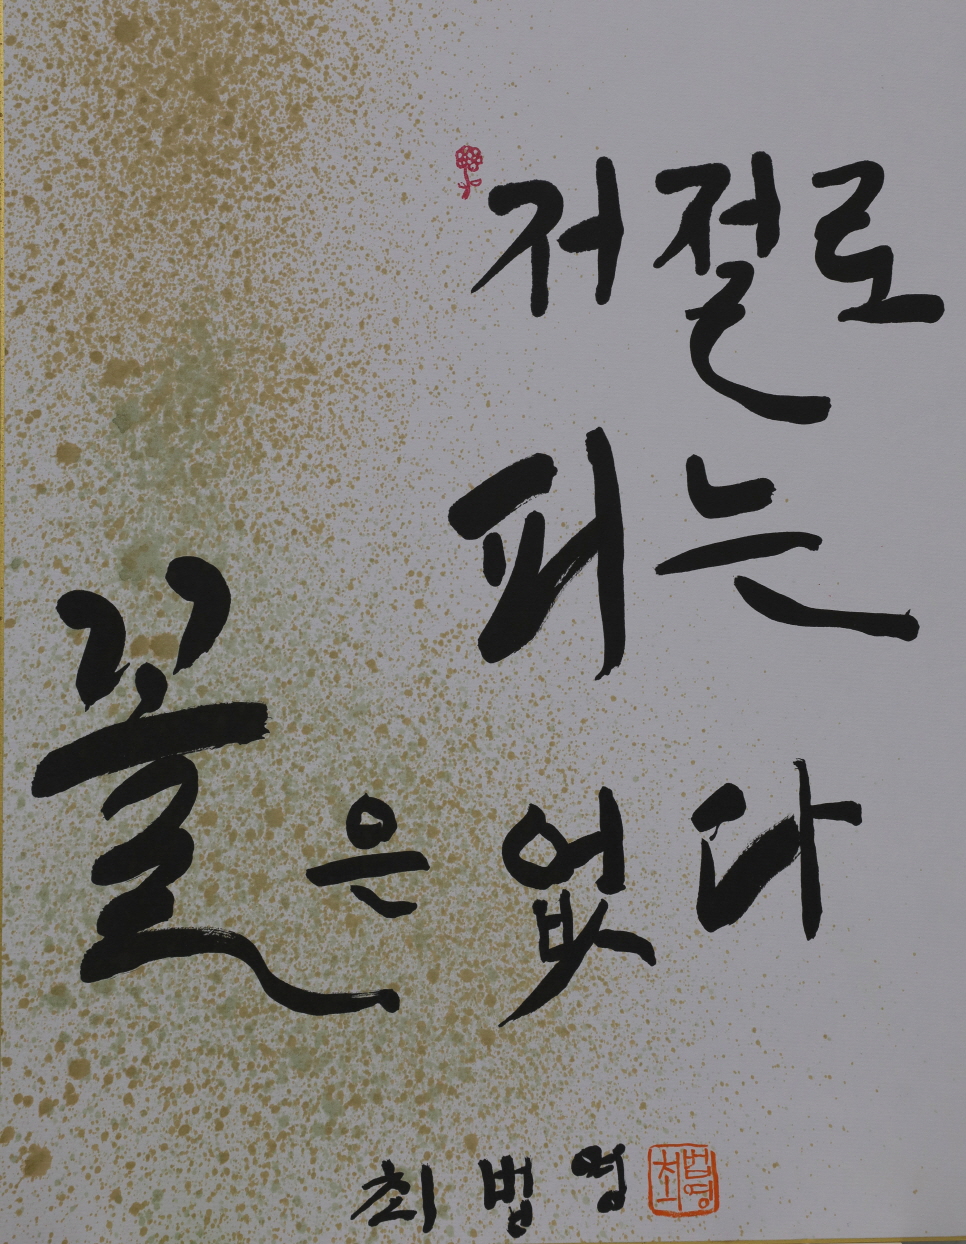 저절로
피는
꽃은 없다
최범영
최범영